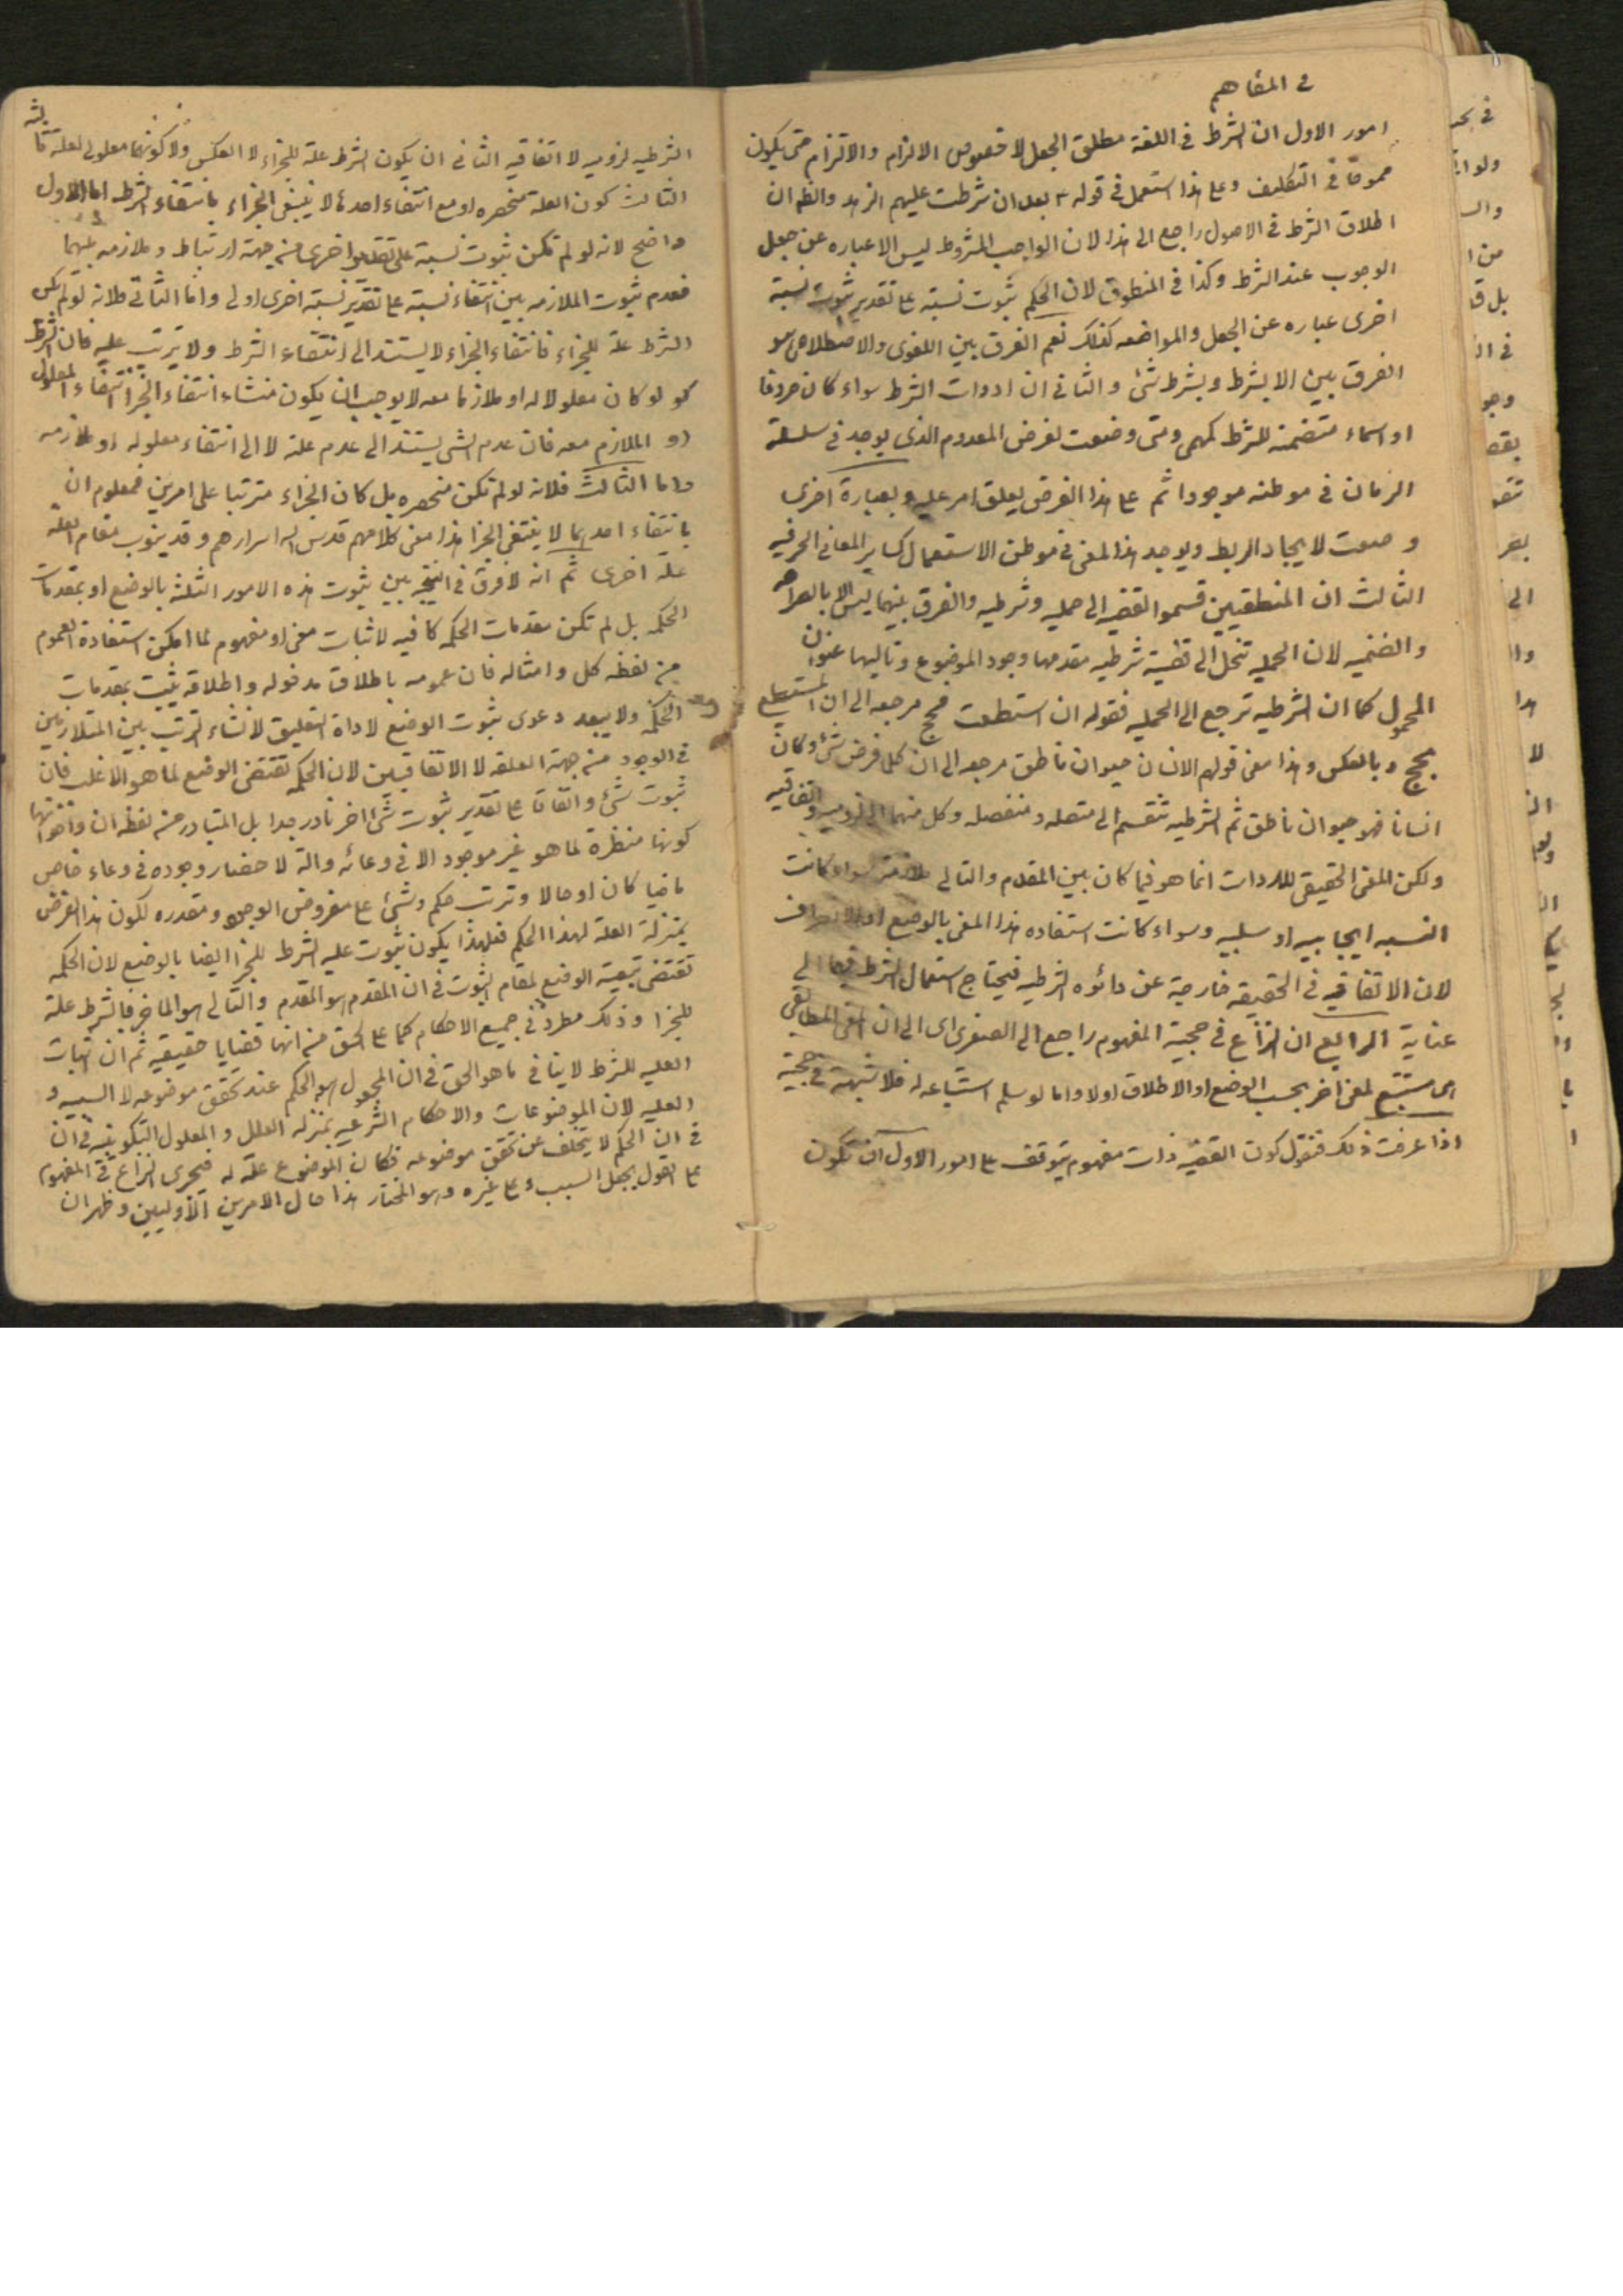 في المفاهيم
امور الاول ان الشرط في اللغة مطلق الجعل لا خصوص الالزام والالتزام حتى يكون
في التكليف وعلى هذا استعمل في قوله ع بعد ان شرطت عليهم الزهد والظ ان
اطلاق الشرط في الاصول راجع الى هذا لان الواجب المشروط ليس الا عباره عن جعل
الوجوب عند الشرط وكذا في المنطوق لان الحكم بثبوت نسبته على تقدير ثبوت نسبته
اخرى عباره عن الجعل والمواضعه كذلك نعم الفرق بين اللغوى والاصطلاحى هو
الفرق بين الا بشرط وبشرط شئ والثانى ان ادوات الشرط سواء كان حروفا
او اسماء متضمنه للشرط كمهمى ومتى وضعت لفرض المعدوم الذى يوجد في سلسلة
الزمان في موطنه موجودا ثم على هذا الفرض يعلق امر عليه وبعبارة اخرى
وضعت لايجاد الربط ويوجد هذا المعنى في موطن الاستعمال كساير المعانى الحرفيه
الثالث ان المنطقيين قسموا القضيه الى حمليه وشرطيه والفرق بينهما ليس الا بالصراحه
والضمنيه لان الحمليه تنحل الى قضية شرطيه مقدمها وجود الموضوع وتاليها عنوان
المحمول كما ان الشرطيه ترجع الى الحمليه فقوله ان استطعت فحج مرجعه الى ان المستطيع
يحج وبالعكس وهذا معنى قولهم الانسان حيوان ناطق مرجعه الى ان كلما فرض شئ وكان
انسانا فهو حيوان ناطق ثم الشرطيه تنقسم الى متصله ومنفصله وكل منهما الى لزوميه واتفاقيه
ولكن المعنى الحقيقى للادوات انما هو فيما كان بين المقدم والتالى ملازمة سواء كانت
النسبه ايجابيه او سلبيه وسواء كانت استفاده هذا المعنى بالوضع او الانصراف
لان الاتفاقيه في الحقيقه خارجية عن دائره الشرطيه فيحتاج استعمال الشرط فيها الى
عناية الرابع ان النزاع في حجية المفهوم راجع الى الصغرى اى الى ان المعنى المطابقى
هل يستتبع لمعنى اخر بحسب الوضع او الاطلاق اولا واما لو سلم استتباعه له فلا شبهة في حجية
اذا عرفت ذلك فنقول كون القضيه ذات مفهوم يتوقف على امور الاول ان تكون
الشرطيه لزوميه لا اتفاقيه الثانى ان يكون الشرط علة للجزاء لا العكس ولا كونهما معلولى لعلة ثالثه
الثالث كون العلة منحصره او مع انتفاء احدها لا ينتفى الجزاء بانتفاء الشرط اما الاول
واضح لانه لو لم تكن ثبوت نسبة على تقدير اخرى من جهة ارتباط وملازمه بينهما
فعدم ثبوت الملازمه بين انتفاء نسبة على تقدير نسبة اخرى اولى واما الثانى فلانه لو لم يكن
الشرط علة للجزاء فانتفاء الجزاء لا يستند الى انتفاء الشرط ولا يترتب عليه فان الشرط
لو كان معلولا له او ملازما معه لا يوجب ان يكون منشاء انتفاء الجزاء انتفاء المعلول
او الملازم معه فان عدم الشئ يستند الى عدم علته لا الى انتفاء معلوله او ملازمه
واما الثالث فلانه لو لم تكن منحصره بل كان الجزاء مترتبا على امرين فمعلوم ان
بانتفاء احدهما لا ينتفى الجزا هذا معنى كلامهم قدس اله اسرارهم وقد ينوب مقام العلة
علة اخرى ثم انه لا فرق في النتيجه بين ثبوت هذه الامور الثلثة بالوضع او بمقدمات
الحكمه بل لم تكن مقدمات الحكمه كافيه لاثبات معنى او مفهوم لما امكن استفادة العموم
من لفظه كل وامثاله فان عمومه باطلاق مدخوله واطلاقه يثبت بمقدمات
الحكمه ولا يبعد دعوى ثبوت الوضع لاداة التعليق لانشاء الترتب بين المتلازمين
في الوجود من جهة العلقه لا الاتفاقيين لان الحكمه تقتضى الوضع لما هو الاغلب فان
ثبوت شئ واتفاقا على تقدير ثبوت شئ اخر نادر جدا بل المتبادر من لفظة ان واخواتها
كونها منظرة لما هو غير موجود الا في وعائه والة لاحضار وجوده في وعاء خاص
ماضيا كان او حالا وترتب حكم وشئ على مفروض الوجود ومقدره لكون هذا الفرض
بمنزلة العلة لهذا الحكم فلهذا يكون ثبوت عليه الشرط للجزا ايضا بالوضع لان الحكمه
تقتضى تبعية الوضع لمقام الثبوت في ان المقدم هو المقدم والتالى هو الماخر فالشرط علة
للجزا وذلك مطرد في جميع الاحكام كما على الحق من انها قضايا حقيقيه ثم ان اثبات
العليه للشرط لا ينافى ما هو الحق في ان المجعول هو الحكم عند تحقق موضوعه لا السببيه و
العليه لان الموضوعات والاحكام الشرعيه بمنزله العلل والمعلول التكوينيه في ان
في ان الحكم لا يتخلف عن تحقق موضوعه فكان الموضوع علة له فيجرى النزاع في المفهوم
على القول بجعل السبب وعلى غيره وهو المختار هذا حال الامرين الاوليين وظهر ان